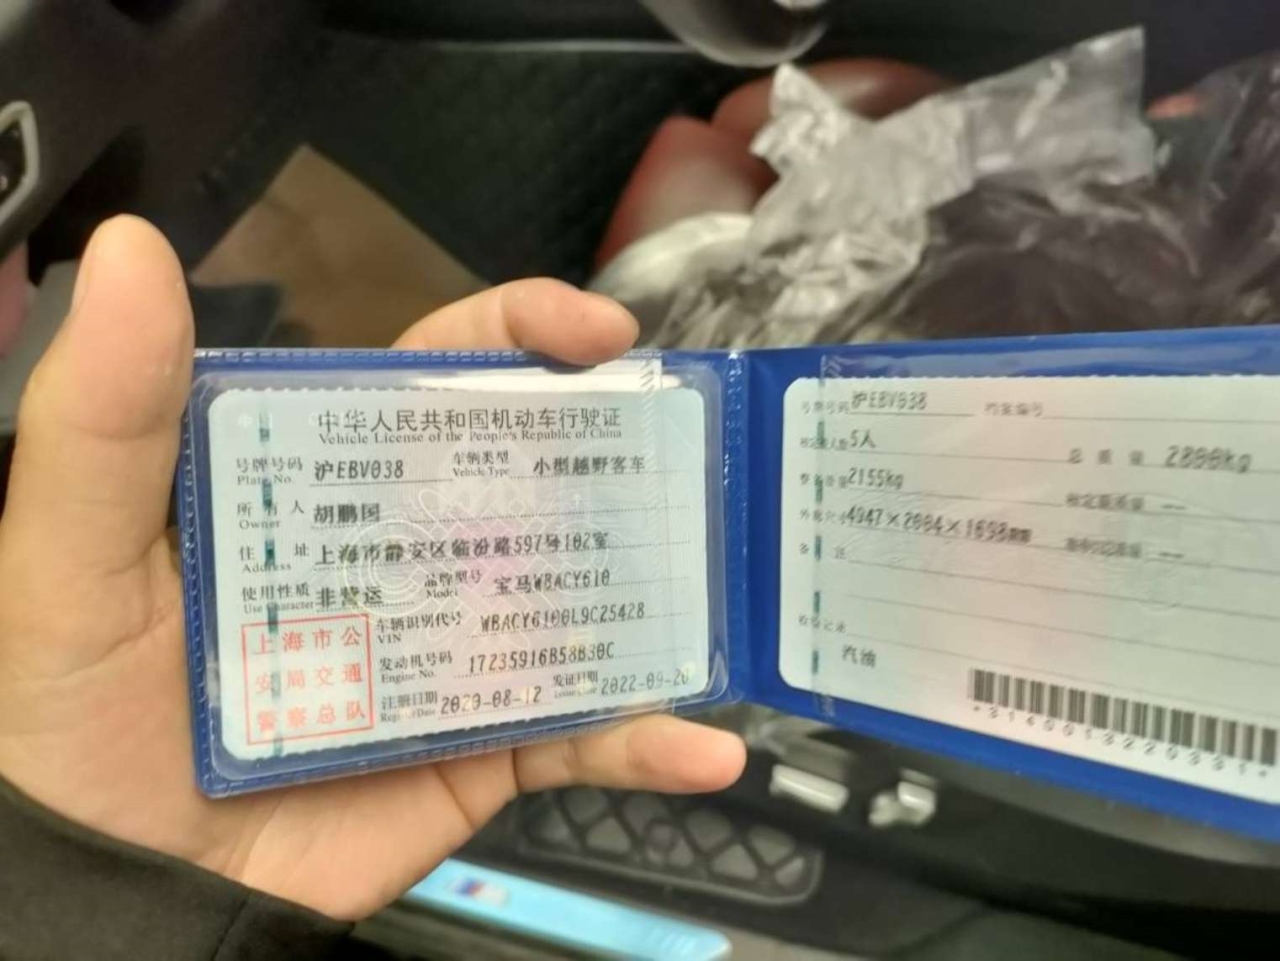 中华人民共和国机动车行驶证
Vehicle License of the People's Republic of China
号牌号码 沪EBV038 车辆类型 小型越野客车
Plate No. Vehicle Type
所有人 胡鹏国
Owner
住址 上海市静安区临汾路597号102室
Address
使用性质 非营运 品牌型号 宝马WBACY610
Use Character Model
车辆识别代号 WBACY6100L9C25428
VIN
发动机号码 17235916B58B30C
Engine No.
注册日期 2020-08-12 发证日期 2022-09-20
Register Date Issue Date
上海市公
安局交通
警察总队
号牌号码 沪EBV038 档案编号
核定载人数 5人 总质量 2800kg
整备质量 2155kg 核定载质量 --
外廓尺寸 4947×2004×1698mm --
备注
检验记录
汽油